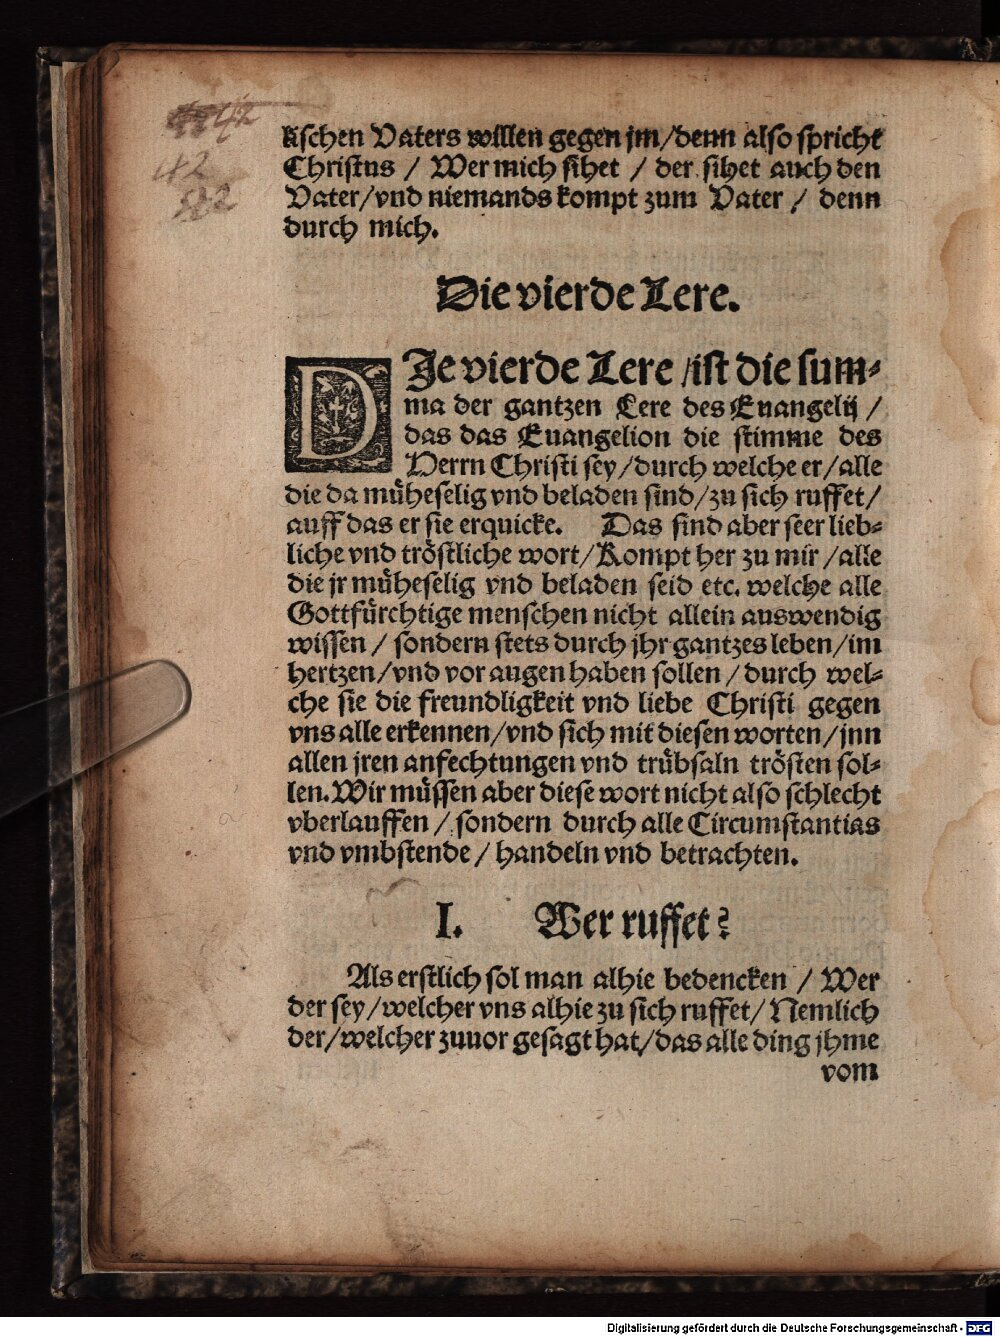 lischen Vaters willen gegen jm/denn also spricht
Christus / Wer mich sihet / der sihet auch den
Vater/vnd niemands kompt zum Vater / denn
durch mich.
Die vierde Lere.
DJe vierde Lere /ist die sum⸗
ma der gantzen Lere des Euangelij /
das das Euangelion die stimme des
Herrn Christi sey/durch welche er/alle
die da muͤheselig vnd beladen sind/zu sich ruffet/
auff das er sie erquicke. Das sind aber seer lieb⸗
liche vnd troͤstliche wort/Kompt her zu mir /alle
die jr muͤheselig vnd beladen seid etc. welche alle
Gottfuͤrchtige menschen nicht allein auswendig
wissen / sondern stets durch jhr gantzes leben/im
hertzen/vnd vor augen haben sollen / durch wel⸗
che sie die freundligkeit vnd liebe Christi gegen
vns alle erkennen/vnd sich mit diesen worten/jnn
allen jren anfechtungen vnd truͤbsaln troͤsten sol⸗
len.Wir muͤssen aber diese wort nicht also schlecht
vberlauffen / sondern durch alle Circumstantias
vnd vmbstende / handeln vnd betrachten.
I. Wer ruffet?
Als erstlich sol man alhie bedencken / Wer
der sey/welcher vns alhie zu sich ruffet/ Nemlich
der/welcher zuuor gesagt hat/das alle ding jhme
vom
42
Digitalisierung gefördert durch die Deutsche Forschungsgemeinschaft - DFG